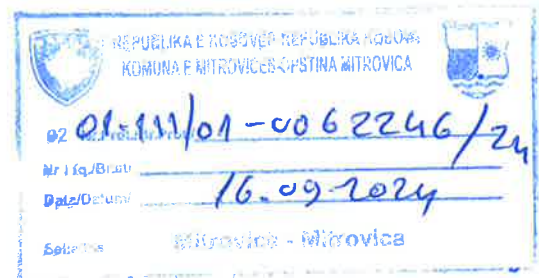 REPUBLIKA E KOSOVËS-REPUBLIKA KOSOVA
KOMUNA E MITROVICËS-OPŠTINA MITROVICA
02 01-111/01-0062246/24
Nr i fq./Br.str
Datë/Datum/ 16.09.2024
Mitrovica - Mitrovica